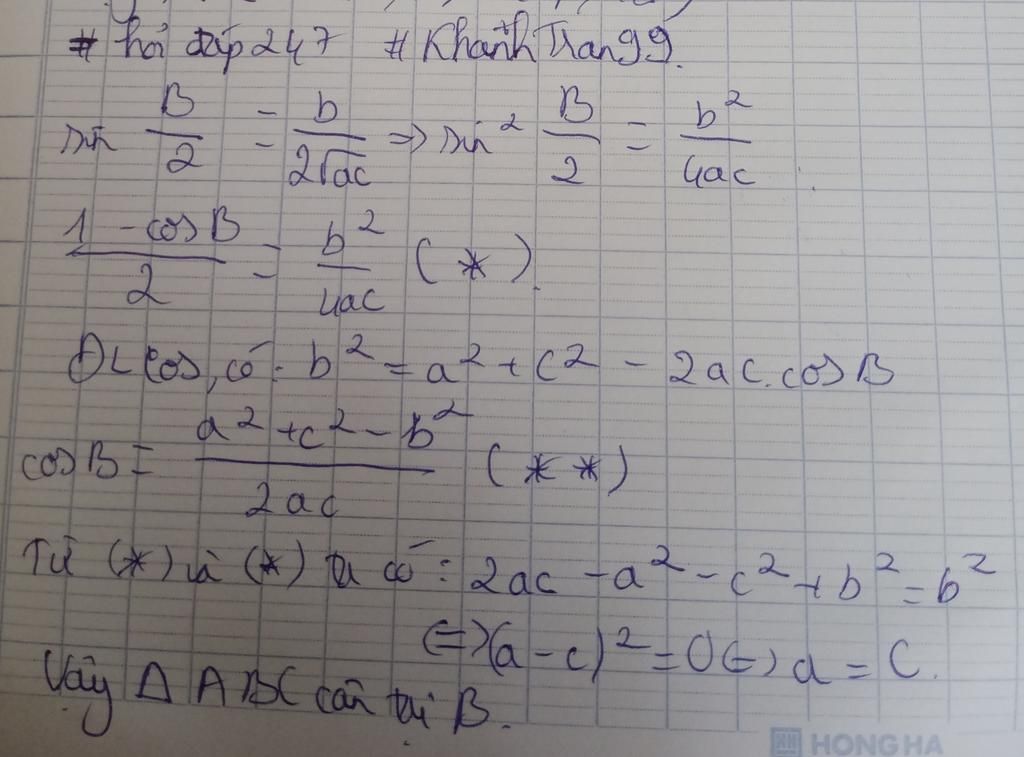 # hỏi đáp 247 # KhánhTran99.
sin B/2 = b/2√ac => sin² B/2 = b²/4ac
(1 - cosB)/2 = b²/4ac (*)
ĐL cos, có: b² = a² + c² - 2ac.cosB
cosB = (a² + c² - b²)/2ac (**)
Từ (*) và (*) ta có: 2ac - a² - c² + b² = b²
<=> (a - c)² = 0 <=> a = c.
Vậy Δ ABC cân tại B.
HONG HA